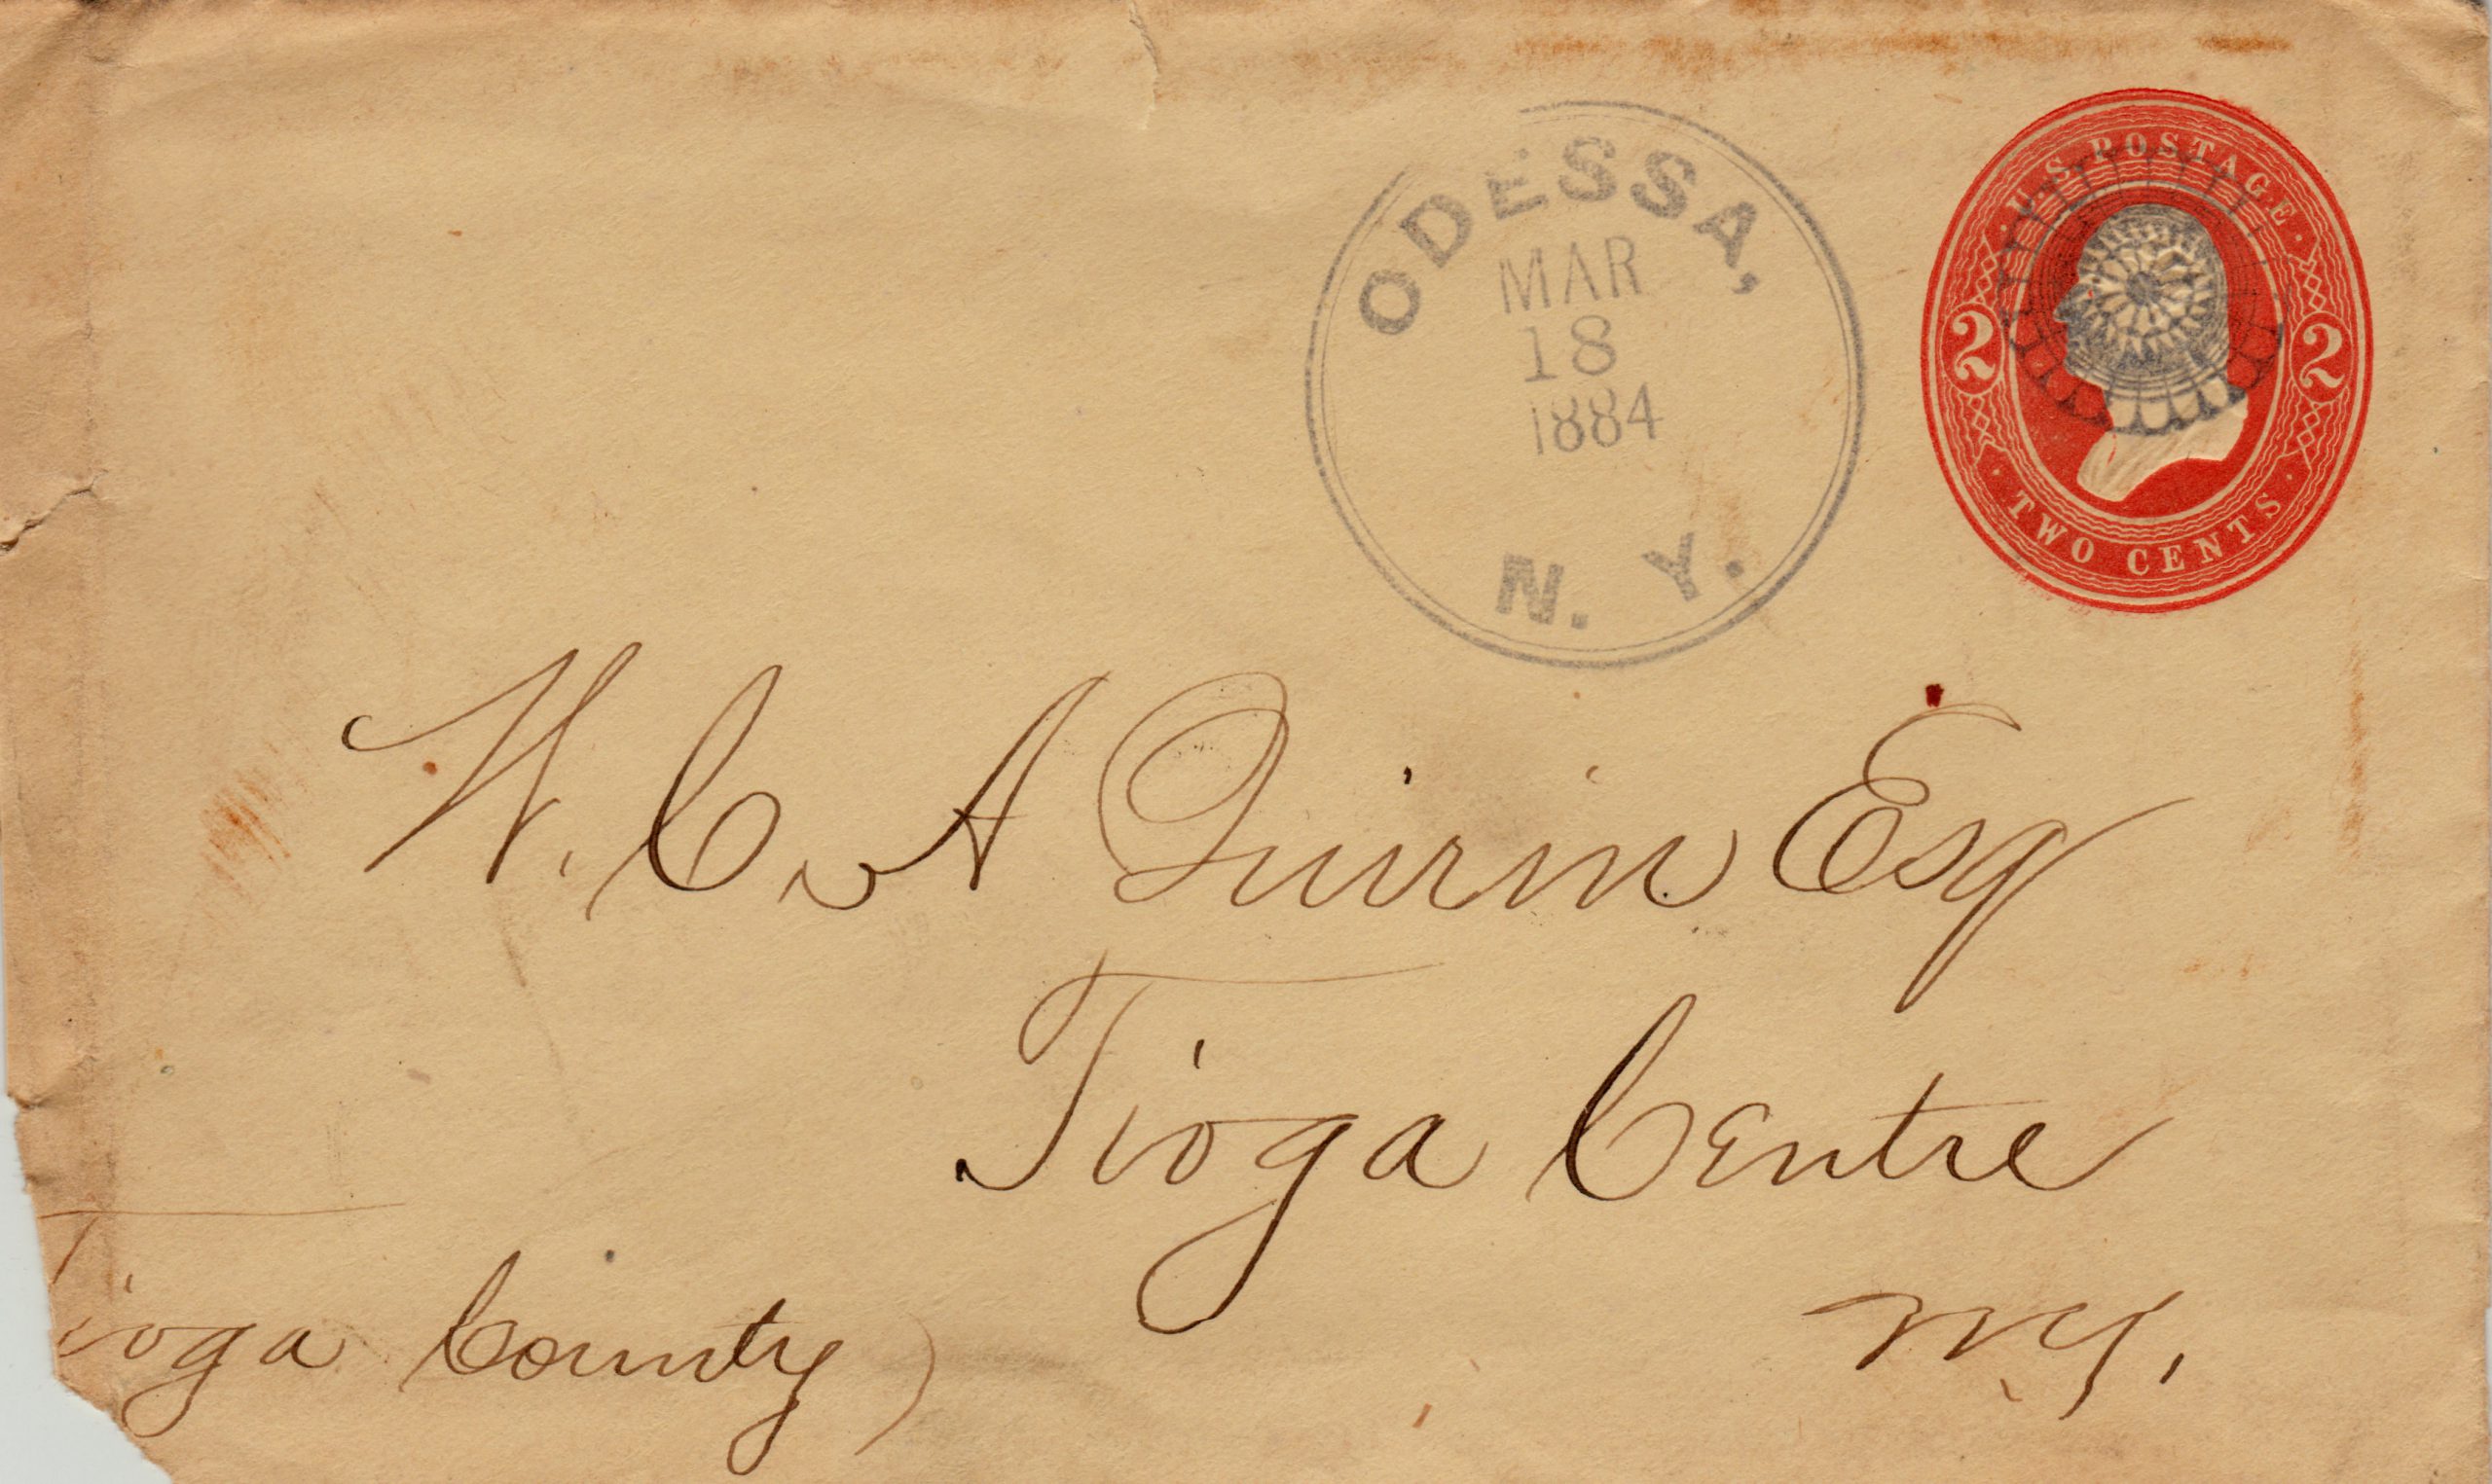 U.S. POSTAGE
2 2
TWO CENTS
ODESSA,
MAR
18
1884
N. Y.
W. C. A Quirin Esq
Tioga Centre
NY.
Tioga County)